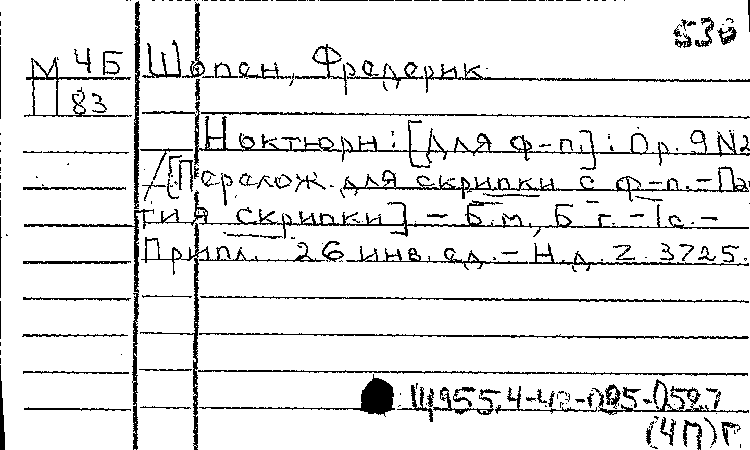 536
М 4Б Шопен, Фредерик.
П 83
Ноктюрн: [для ф-п.]: Op. 9 N2
/[Перелож. для скрипки с ф-п. - Пар
тия скрипки]. - Б. м., Б. г. - 1с. -
Припл. 26 инв. ед. - Н. д. Z. 3725.
Щ955.4-42-095-0527
(4П)Г.